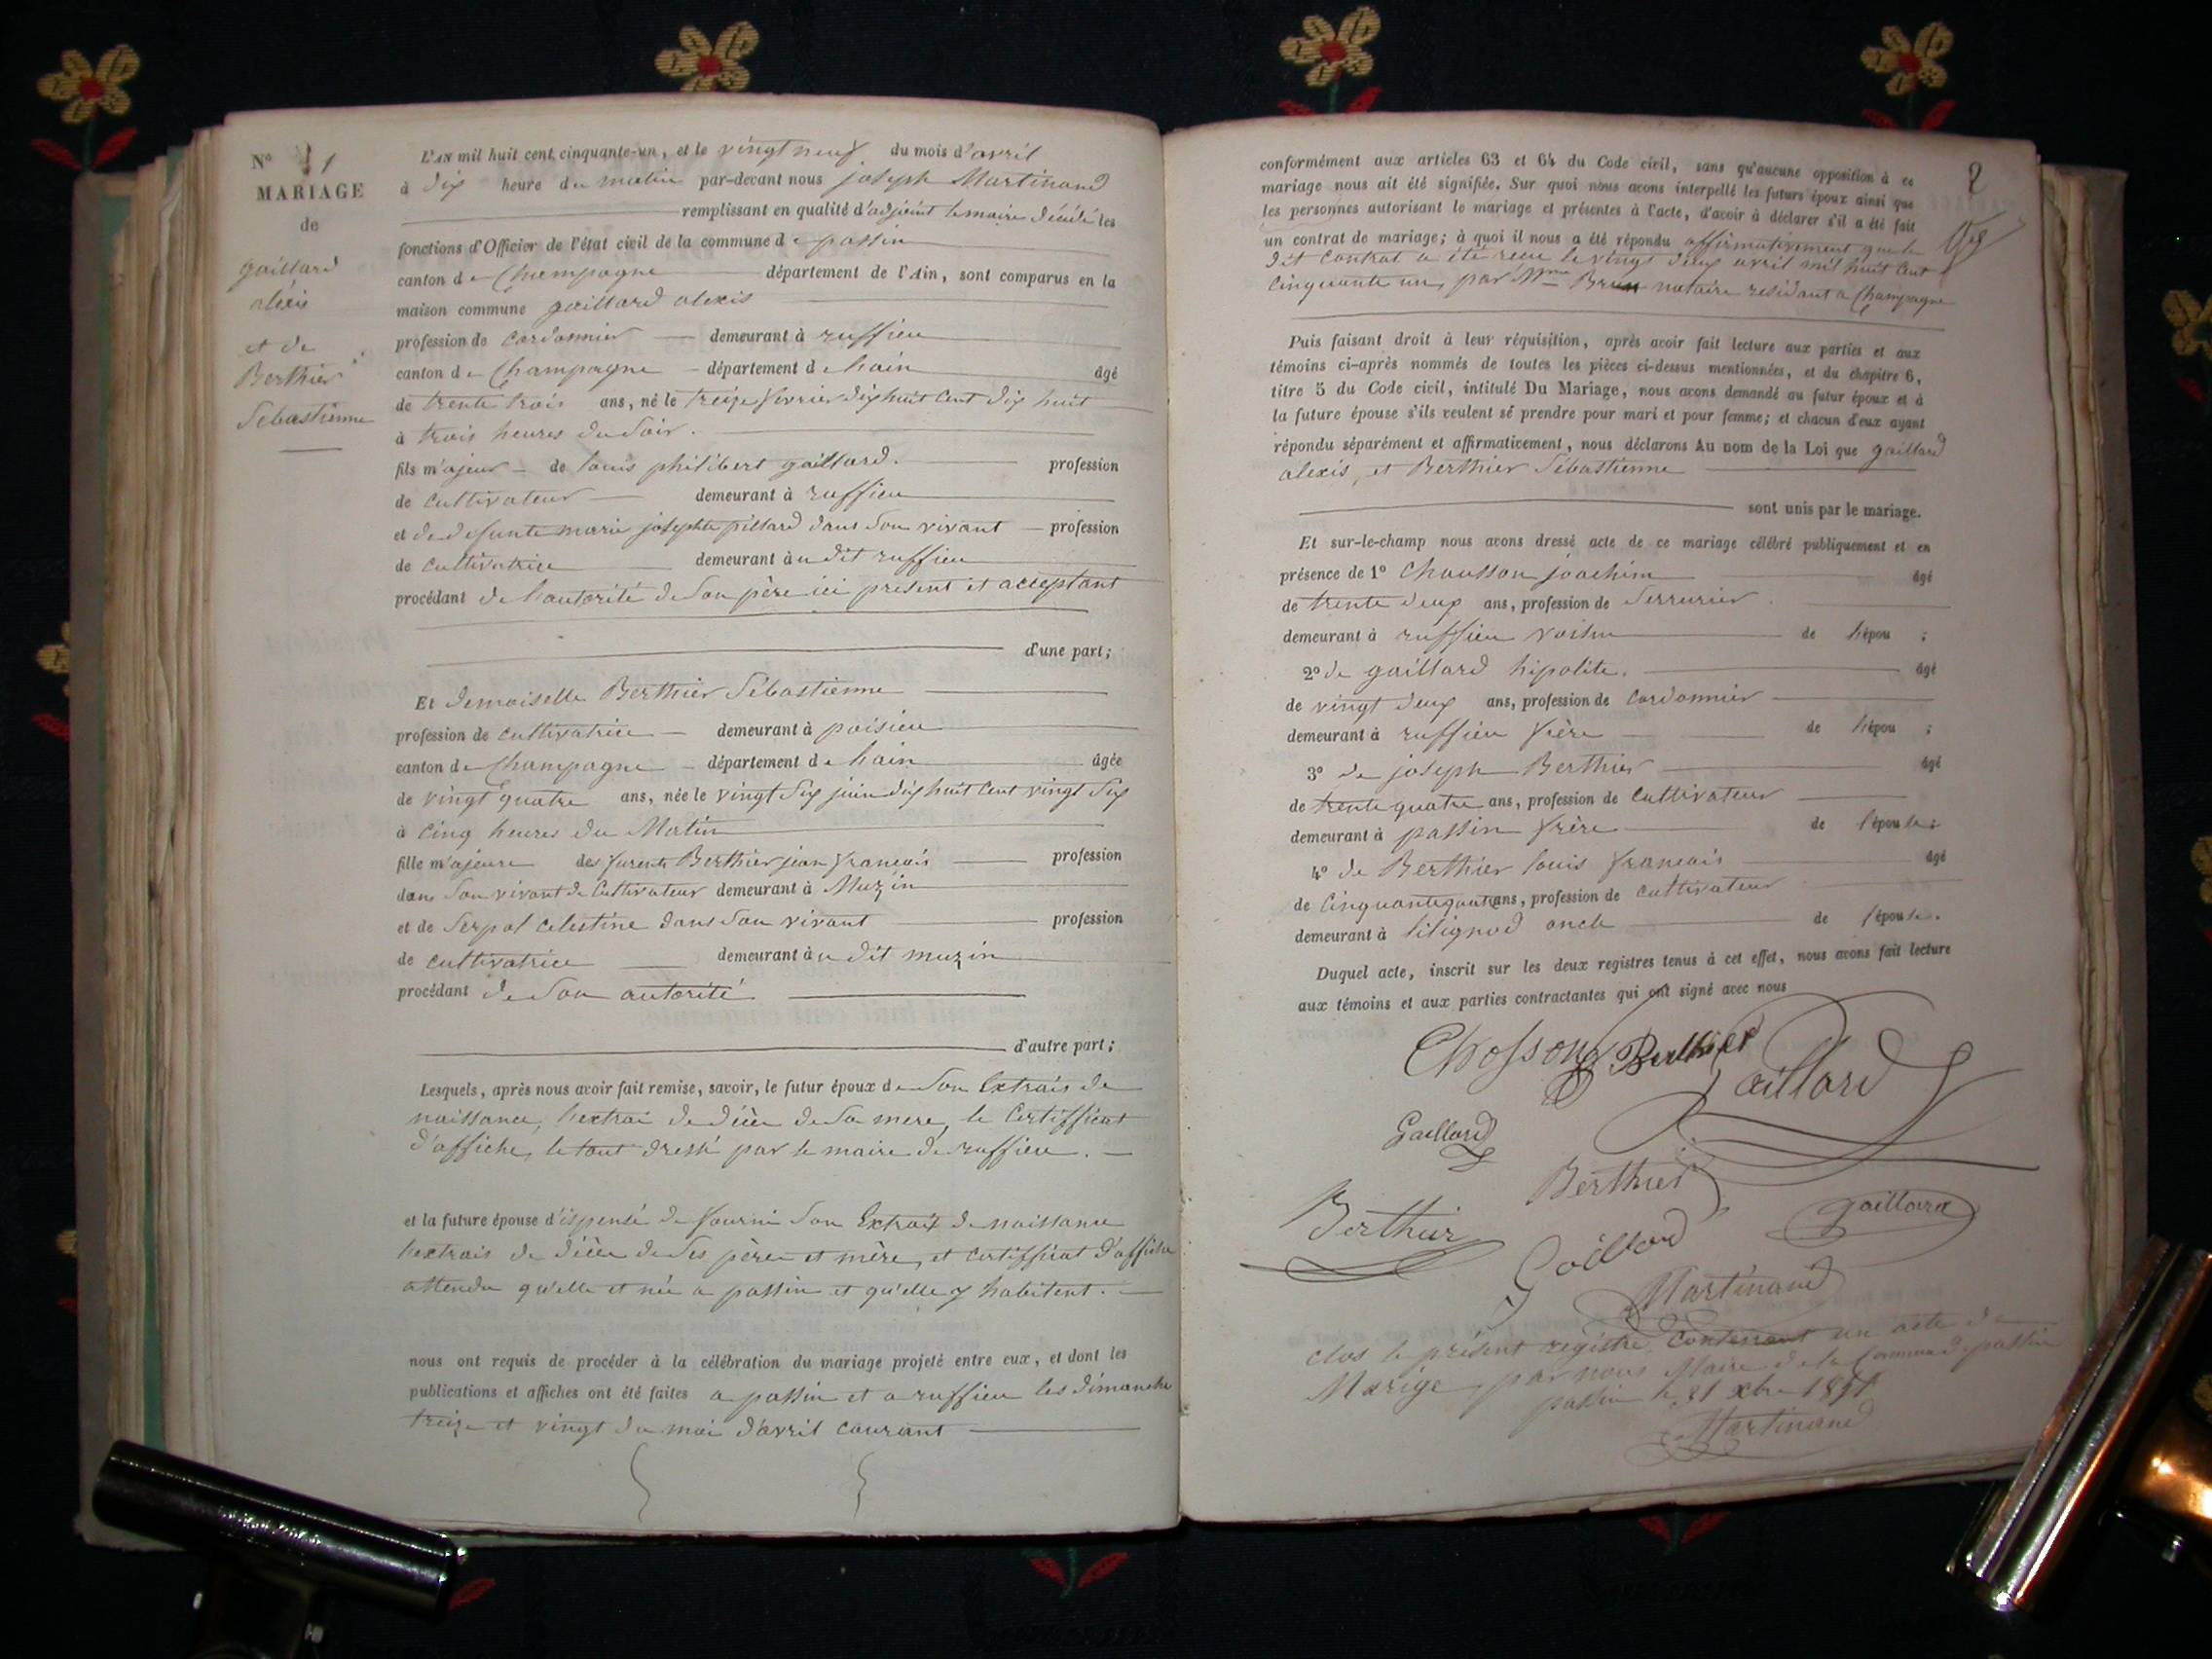 N° 1
MARIAGE
de
gaillard
alexis
et de
Berthier
Sébastienne
L'AN mil huit cent cinquante-un, et le vingt neuf du mois d'avril
à dix heure du matin par-devant nous joseph Martinand
remplissant en qualité d'adjoint le maire décédé les
fonctions d'Officier de l'état civil de la commune de passin
canton de Champagne département de l'Ain, sont comparus en la
maison commune gaillard alexis
profession de cordonnier demeurant à ruffieu
canton de Champagne département de lain âgé
de trente trois ans, né le treize fevrier dix huit cent dix huit
à trois heures du soir.
fils majeur de louis philibert gaillard. profession
de cultivateur demeurant à ruffieu
et de defunte marie josephte pillard dans son vivant profession
de cultivatrice demeurant au dit ruffieu
procédant de lautorité de son père ici present et acceptant
d'une part;
Et demoiselle Berthier Sébastienne
profession de cultivatrice demeurant à poisieu
canton de Champagne département de lain âgée
de vingt quatre ans, née le vingt six juin dix huit cent vingt six
à cinq heures du Matin
fille majeure de furent Berthier jean francois profession
dans son vivant de cultivateur demeurant à Muzin
et de Serpol celestine dans son vivant profession
de cultivatrice demeurant au dit muzin
procédant de son autorité
d'autre part;
Lesquels, après nous avoir fait remise, savoir, le futur époux de son Extrais de
naissance, lextrai de décè de sa mere, le Certifficat
d'affiche, le tout dressé par le maire de ruffieu.
et la future épouse d'ispensé de fourni son Extrait de naissance
lextrais de décè de ses père et mère, et certifficat d'affiche
attendu qu'elle et née a passin et qu'elle y habitent.
nous ont requis de procéder à la célébration du mariage projeté entre eux, et dont les
publications et affiches ont été faites a passin et a ruffieu les dimanche
treize et vingt du moi d'avril courant
2
conformément aux articles 63 et 64 du Code civil, sans qu'aucune opposition à ce
mariage nous ait été signifiée. Sur quoi nous avons interpellé les futurs époux ainsi que
les personnes autorisant le mariage et présentes à l'acte, d'avoir à déclarer s'il a été fait
un contrat de mariage; à quoi il nous a été répondu affirmativement que le
dit contrat a été recu le vingt deux avril mil huit cent
cinquante un, par Brun notaire residant a Champagne
Puis faisant droit à leur réquisition, après avoir fait lecture aux parties et aux
témoins ci-après nommés de toutes les pièces ci-dessus mentionnées, et du chapitre 6,
titre 5 du Code civil, intitulé Du Mariage, nous avons demandé au futur époux et à
la future épouse s'ils veulent se prendre pour mari et pour femme; et chacun d'eux ayant
répondu séparément et affirmativement, nous déclarons Au nom de la Loi que gaillard
alexis, et Berthier Sébastienne
sont unis par le mariage.
Et sur-le-champ nous avons dressé acte de ce mariage célébré publiquement et en
présence de 1° Chausson joachim âgé
de trente deux ans, profession de Serrurier
demeurant à ruffieu voisin de lépou ;
2° de gaillard hipolite. âgé
de vingt deux ans, profession de cordonnier
demeurant à ruffieu frère de lépou ;
3° de joseph Berthier âgé
de trente quatre ans, profession de cultivateur
demeurant à passin frère de l'épouse;
4° de Berthier louis francois âgé
de cinquante ans, profession de cultivateur
demeurant à lilignod oncle de l'épouse.
Duquel acte, inscrit sur les deux registres tenus à cet effet, nous avons fait lecture
aux témoins et aux parties contractantes qui ont signé avec nous
Chosson Berthier Gaillard
Gaillard
Berthier
Berthier gaillard
Gaillard
Martinand
clos le présent registre contenant un acte de
Marige, par nous Maire de la Commune de passin
passin le 31 xbre 1851
Martinand